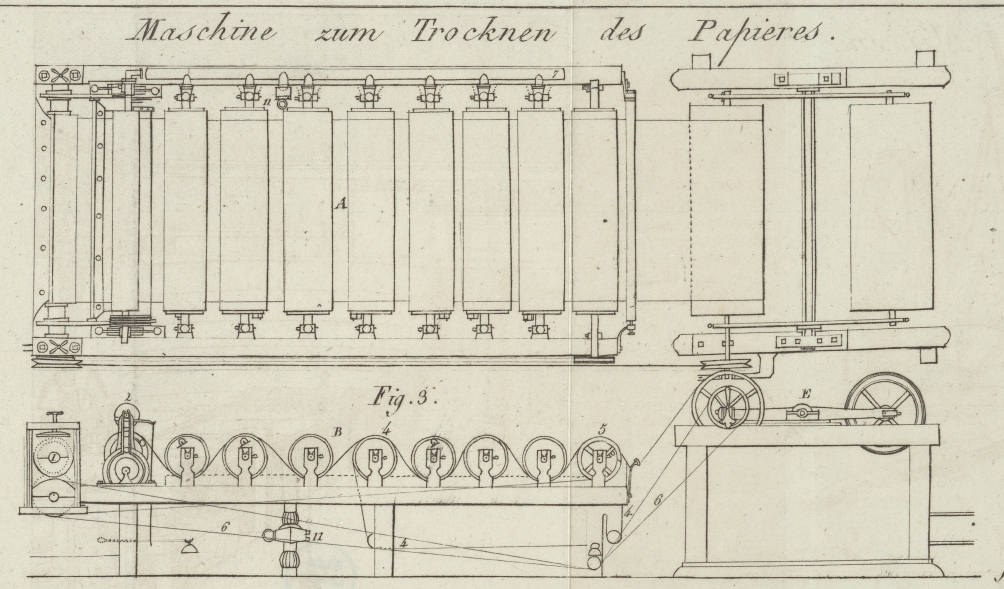 Maschine zum Trocknen des Papieres.
7
11
A
Fig. 3.
2
B
4
5
E
6
4
6
11
4